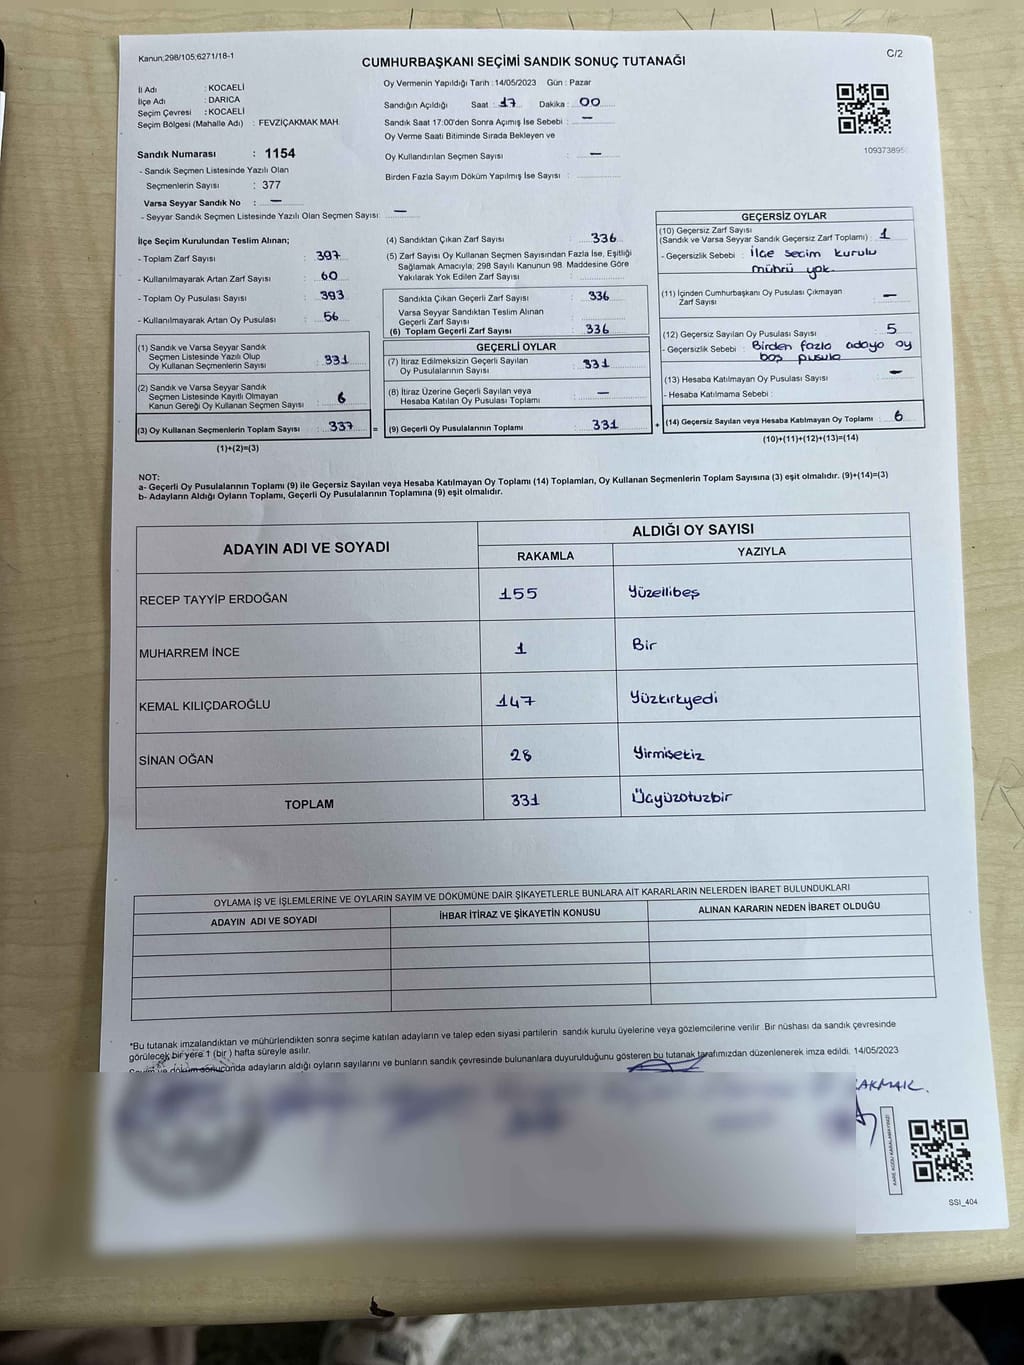 Kanun:298/105:6271/18-1
CUMHURBAŞKANI SEÇİMİ SANDIK SONUÇ TUTANAĞI
C/2
İl Adı : KOCAELİ
İlçe Adı : DARICA
Seçim Çevresi : KOCAELİ
Seçim Bölgesi (Mahalle Adı) : FEVZİÇAKMAK MAH.
Oy Vermenin Yapıldığı Tarih : 14/05/2023 Gün : Pazar
Sandığın Açıldığı Saat : 17 Dakika : 00
Sandık Saat 17:00'den Sonra Açımış İse Sebebi : —
Oy Verme Saati Bitiminde Sırada Bekleyen ve
Oy Kullandırılan Seçmen Sayısı : —
Birden Fazla Sayım Döküm Yapılmış İse Sayısı :
109373895
Sandık Numarası : 1154
- Sandık Seçmen Listesinde Yazılı Olan
Seçmenlerin Sayısı : 377
Varsa Seyyar Sandık No : —
- Seyyar Sandık Seçmen Listesinde Yazılı Olan Seçmen Sayısı: —
İlçe Seçim Kurulundan Teslim Alınan;
- Toplam Zarf Sayısı : 397
- Kullanılmayarak Artan Zarf Sayısı : 60
- Toplam Oy Pusulası Sayısı : 393
- Kullanılmayarak Artan Oy Pusulası : 56
(1) Sandık ve Varsa Seyyar Sandık
Seçmen Listesinde Yazılı Olup
Oy Kullanan Seçmenlerin Sayısı : 331
(2) Sandık ve Varsa Seyyar Sandık
Seçmen Listesinde Kayıtlı Olmayan
Kanun Gereği Oy Kullanan Seçmen Sayısı : 6
(3) Oy Kullanan Seçmenlerin Toplam Sayısı : 337 =
(1)+(2)=(3)
(4) Sandıktan Çıkan Zarf Sayısı : 336
(5) Zarf Sayısı Oy Kullanan Seçmen Sayısından Fazla İse, Eşitliği
Sağlamak Amacıyla; 298 Sayılı Kanunun 98. Maddesine Göre
Yakılarak Yok Edilen Zarf Sayısı :
Sandıkta Çıkan Geçerli Zarf Sayısı : 336
Varsa Seyyar Sandıktan Teslim Alınan
Geçerli Zarf Sayısı :
(6) Toplam Geçerli Zarf Sayısı : 336
GEÇERLİ OYLAR
(7) İtiraz Edilmeksizin Geçerli Sayılan
Oy Pusulalarının Sayısı : 331
(8) İtiraz Üzerine Geçerli Sayılan veya
Hesaba Katılan Oy Pusulası Toplamı : —
(9) Geçerli Oy Pusulalarının Toplamı : 331 +
GEÇERSİZ OYLAR
(10) Geçersiz Zarf Sayısı
(Sandık ve Varsa Seyyar Sandık Geçersiz Zarf Toplamı) : 1
- Geçersizlik Sebebi : İlçe seçim kurulu
mührü yok.
(11) İçinden Cumhurbaşkanı Oy Pusulası Çıkmayan
Zarf Sayısı : —
(12) Geçersiz Sayılan Oy Pusulası Sayısı : 5
- Geçersizlik Sebebi : Birden fazla adaya oy
boş pusula
(13) Hesaba Katılmayan Oy Pusulası Sayısı : —
- Hesaba Katılmama Sebebi :
(14) Geçersiz Sayılan veya Hesaba Katılmayan Oy Toplamı : 6
(10)+(11)+(12)+(13)=(14)
NOT:
a- Geçerli Oy Pusulalarının Toplamı (9) ile Geçersiz Sayılan veya Hesaba Katılmayan Oy Toplamı (14) Toplamları, Oy Kullanan Seçmenlerin Toplam Sayısına (3) eşit olmalıdır. (9)+(14)=(3)
b- Adayların Aldığı Oyların Toplamı, Geçerli Oy Pusulalarının Toplamına (9) eşit olmalıdır.
ADAYIN ADI VE SOYADI
ALDIĞI OY SAYISI
RAKAMLA YAZIYLA
RECEP TAYYİP ERDOĞAN 155 Yüzellibeş
MUHARREM İNCE 1 Bir
KEMAL KILIÇDAROĞLU 147 Yüzkırkyedi
SİNAN OĞAN 28 Yirmisekiz
TOPLAM 331 Üçyüzotuzbir
OYLAMA İŞ VE İŞLEMLERİNE VE OYLARIN SAYIM VE DÖKÜMÜNE DAİR ŞİKAYETLERLE BUNLARA AİT KARARLARIN NELERDEN İBARET BULUNDUKLARI
ADAYIN ADI VE SOYADI
İHBAR İTİRAZ VE ŞİKAYETİN KONUSU
ALINAN KARARIN NEDEN İBARET OLDUĞU
*Bu tutanak imzalandıktan ve mühürlendikten sonra seçime katılan adayların ve talep eden siyasi partilerin sandık kurulu üyelerine veya gözlemcilerine verilir. Bir nüshası da sandık çevresinde
görülecek bir yere 1 (bir ) hafta süreyle asılır.
Seçim ve döküm sonucunda adayların aldığı oyların sayılarını ve bunların sandık çevresinde bulunanlara duyurulduğunu gösteren bu tutanak tarafımızdan düzenlenerek imza edildi. 14/05/2023
AKMAK.
SSI_404